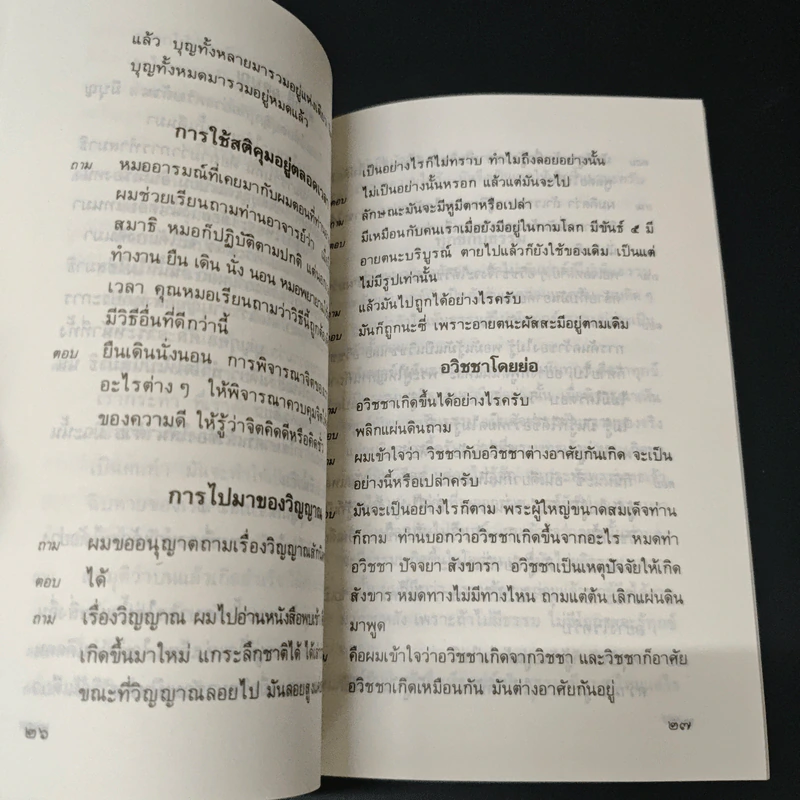 แล้ว บุญทั้งหลายมารวมอยู่แห่งเดียว
บุญทั้งหมดมารวมอยู่หมดแล้ว
การใช้สติคุมอยู่ตลอดเวลา
ถาม หมออารมณ์ที่เคยมากับผมตอนที่
ผมช่วยเรียนถามท่านอาจารย์ว่า
สมาธิ หมอก็ปฏิบัติตามปกติ
ทำงาน ยืน เดิน นั่ง นอน หมอพยายาม
เวลา คุณหมอเรียนถามว่าวิธีนี้ถูก
มีวิธีอื่นที่ดีกว่านี้
ตอบ ยืนเดินนั่งนอน การพิจารณาจิต
อะไรต่าง ๆ ให้พิจารณาควบคุมจิต
ของความดี ให้รู้ว่าจิตคิดดีหรือคิดชั่ว
การไปมาของวิญญาณ
ถาม ผมขออนุญาตถามเรื่องวิญญาณ
ตอบ ได้
ถาม เรื่องวิญญาณ ผมไปอ่านหนังสือพบเข้า
เกิดขึ้นมาใหม่ แกระลึกชาติได้
ขณะที่วิญญาณลอยไป มันลอยสูง
๒๖
เป็นอย่างไรก็ไม่ทราบ ทำไมถึงลอยอย่างนั้น
ไม่เป็นอย่างนั้นหรอก แล้วแต่มันจะไป
ลักษณะมันจะมีหูมีตาหรือเปล่า
มีเหมือนกับคนเราเมื่อยังมีอยู่ในกามโลก มีขันธ์ ๕ มี
อายตนะบริบูรณ์ ตายไปแล้วก็ยังใช้ของเดิม เป็นแต่
ไม่มีรูปเท่านั้น
แล้วมันไปถูกได้อย่างไรครับ
มันก็ถูกนะซี่ เพราะอายตนะผัสสะมีอยู่ตามเดิม
อวิชชาโดยย่อ
อวิชชาเกิดขึ้นได้อย่างไรครับ
พลิกแผ่นดินถาม
ผมเข้าใจว่า วิชชากับอวิชชาต่างอาศัยกันเกิด จะเป็น
อย่างนี้หรือเปล่าครับ
มันจะเป็นอย่างไรก็ตาม พระผู้ใหญ่ขนาดสมเด็จท่าน
ก็ถาม ท่านบอกว่าอวิชชาเกิดขึ้นจากอะไร หมดท่า
อวิชชา ปัจจยา สังขารา อวิชชาเป็นเหตุปัจจัยให้เกิด
สังขาร หมดทางไม่มีทางไหน ถามแต่ต้น เลิกแผ่นดิน
มาพูด
คือผมเข้าใจว่าอวิชชาเกิดจากวิชชา และวิชชาก็อาศัย
อวิชชาเกิดเหมือนกัน มันต่างอาศัยกันอยู่
๒๗